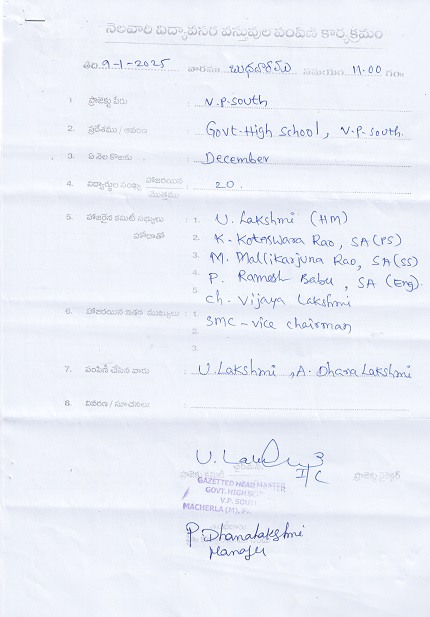 నెలవారి విద్యావసర వస్తువుల పంపిణి కార్యక్రమం
తేది 9-1-2025 వారము బుధవారము సమయం 11.00 గం
1. ప్రాజెక్టు పేరు : N.P. South
2. ప్రదేశము / ఆవరణ : Govt. High school, N.P. South.
3. ఏ నెల కొఱకు : December
4. విద్యార్థుల సంఖ్య హాజరయిన / మొత్తము : 20.
5. హాజరైన కమిటీ సభ్యులు హోదాతో : 1. U. Lakshmi (HM)
2. K. Koteswara Rao, SA (PS)
3. M. Mallikarjuna Rao, SA (SS)
4. P. Ramesh Babu, SA (Eng)
5. Ch. Vijaya Lakshmi
6. హాజరయిన ఇతర ముఖ్యులు : 1. SMC - vice chairman
2.
3.
7. పంపిణి చేసిన వారు : U. Lakshmi, A. Dhana Lakshmi
8. వివరణ / సూచనలు :
I/C
ప్రాజెక్టు కమిటీ
GAZETTED HEAD MASTER
GOVT. HIGH
V.P. SOUTH
MACHERLA (M),
P. Dhanalakshmi
Manager